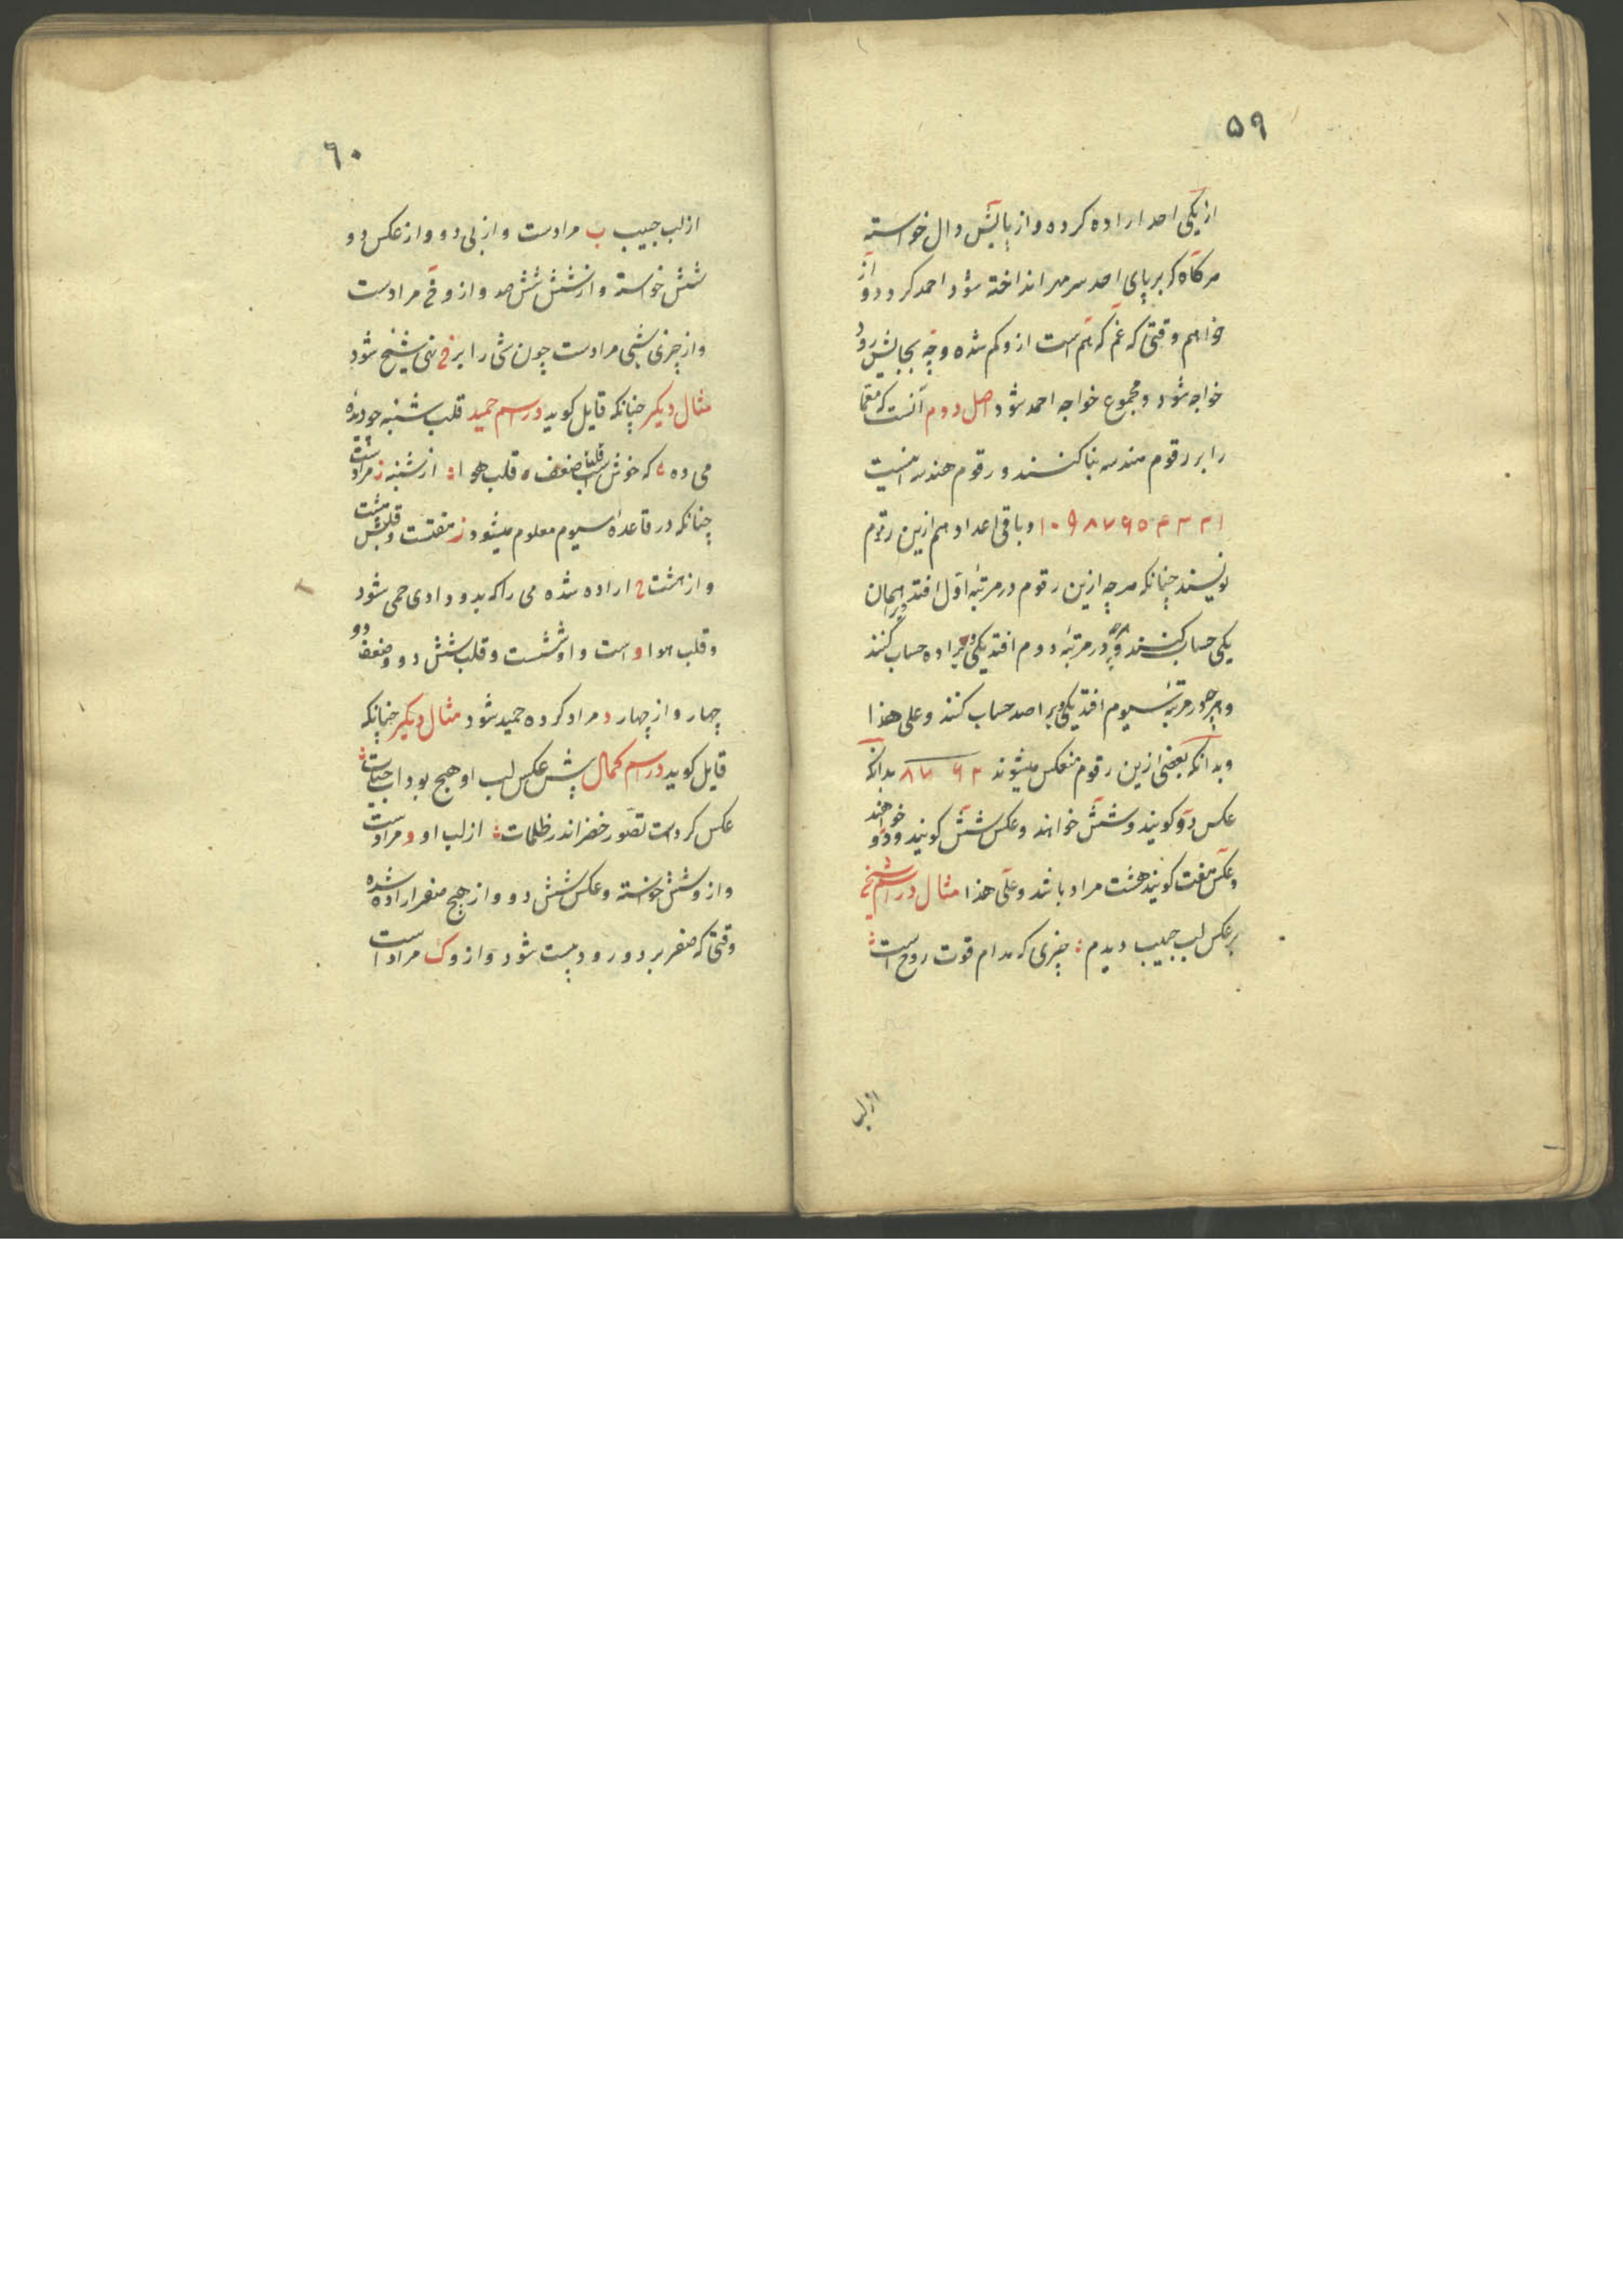 ٥٩
از یکی احد اراده کرده و از پایش دال خواسته
هرگاه که بر پای احد سر مهر انداخته شود احمد گردد و از
خواهم وقتی که غم که هم است ازو کم شده و چه بجایش رود
خواجه شود و مجموع خواجه احمد شود اصل دوم آنست که معما
را بر رقوم هندسه بنا کنند و رقوم هندسه اینست
۱ ۲ ۳ ۴ ۵ ۶ ۷ ۸ ۹ ۱۰ و باقی اعداد هم ازین رقوم
نویسند چنانکه هر چه ازین رقوم در مرتبهٔ اول افتد ویرا همان
یکی حساب کنند و هرچه در مرتبهٔ دوم افتد یکی ویرا ده حساب کنند
و هرچه در مرتبهٔ سیوم افتد یکی ویرا صد حساب کنند و علی هذا
و بدانکه بعضی ازین رقوم منعکس میشوند ۲ ۶ ۷ ۸ بدانکه
عکس دو کویند و شش خواهند و عکس شش کویند و دو خواهند
و عکس هفت کویند هشت مراد باشد و علی هذا مثال در اسم شیخ
بر عکس لب حبیب دیدم چیزی که مدام قوت روح است
از لب
٦٠
از لب حبیب ب مرادست و از بی دو و از عکس دو
شش خواسته و از شش شش صد و ازو خ مرادست
و از چیزی شی مرادست چون شی را بر خ نهی شیخ شود
مثال دیکر چنانکه قایل کوید در اسم حمید قلب شنبه چو دیدهٔ
می ده که خوش است قلب ضعف قلب هوا از شنبه ز مرادست
چنانکه در قاعدهٔ سیوم معلوم میشود ز هفتست و قلبش هشت
و از هشت ح اراده شده می را که بدو دادی حمی شود
و قلب هوا و است و او ششست و قلب شش دو و ضعف دو
چهار و از چهار د مراد کرده حمید شود مثال دیکر چنانکه
قایل کوید در اسم کمال پیش عکس لب او هیچ بود آب حیات
عکس کردست تصور خضر اندر ظلمات از لب او و مرادست
و از و شش خواسته و عکس شش دو و از هیچ صفر اراده شده
وقتی که صفر بر دو رود بیست شود و ازو ک مراد است